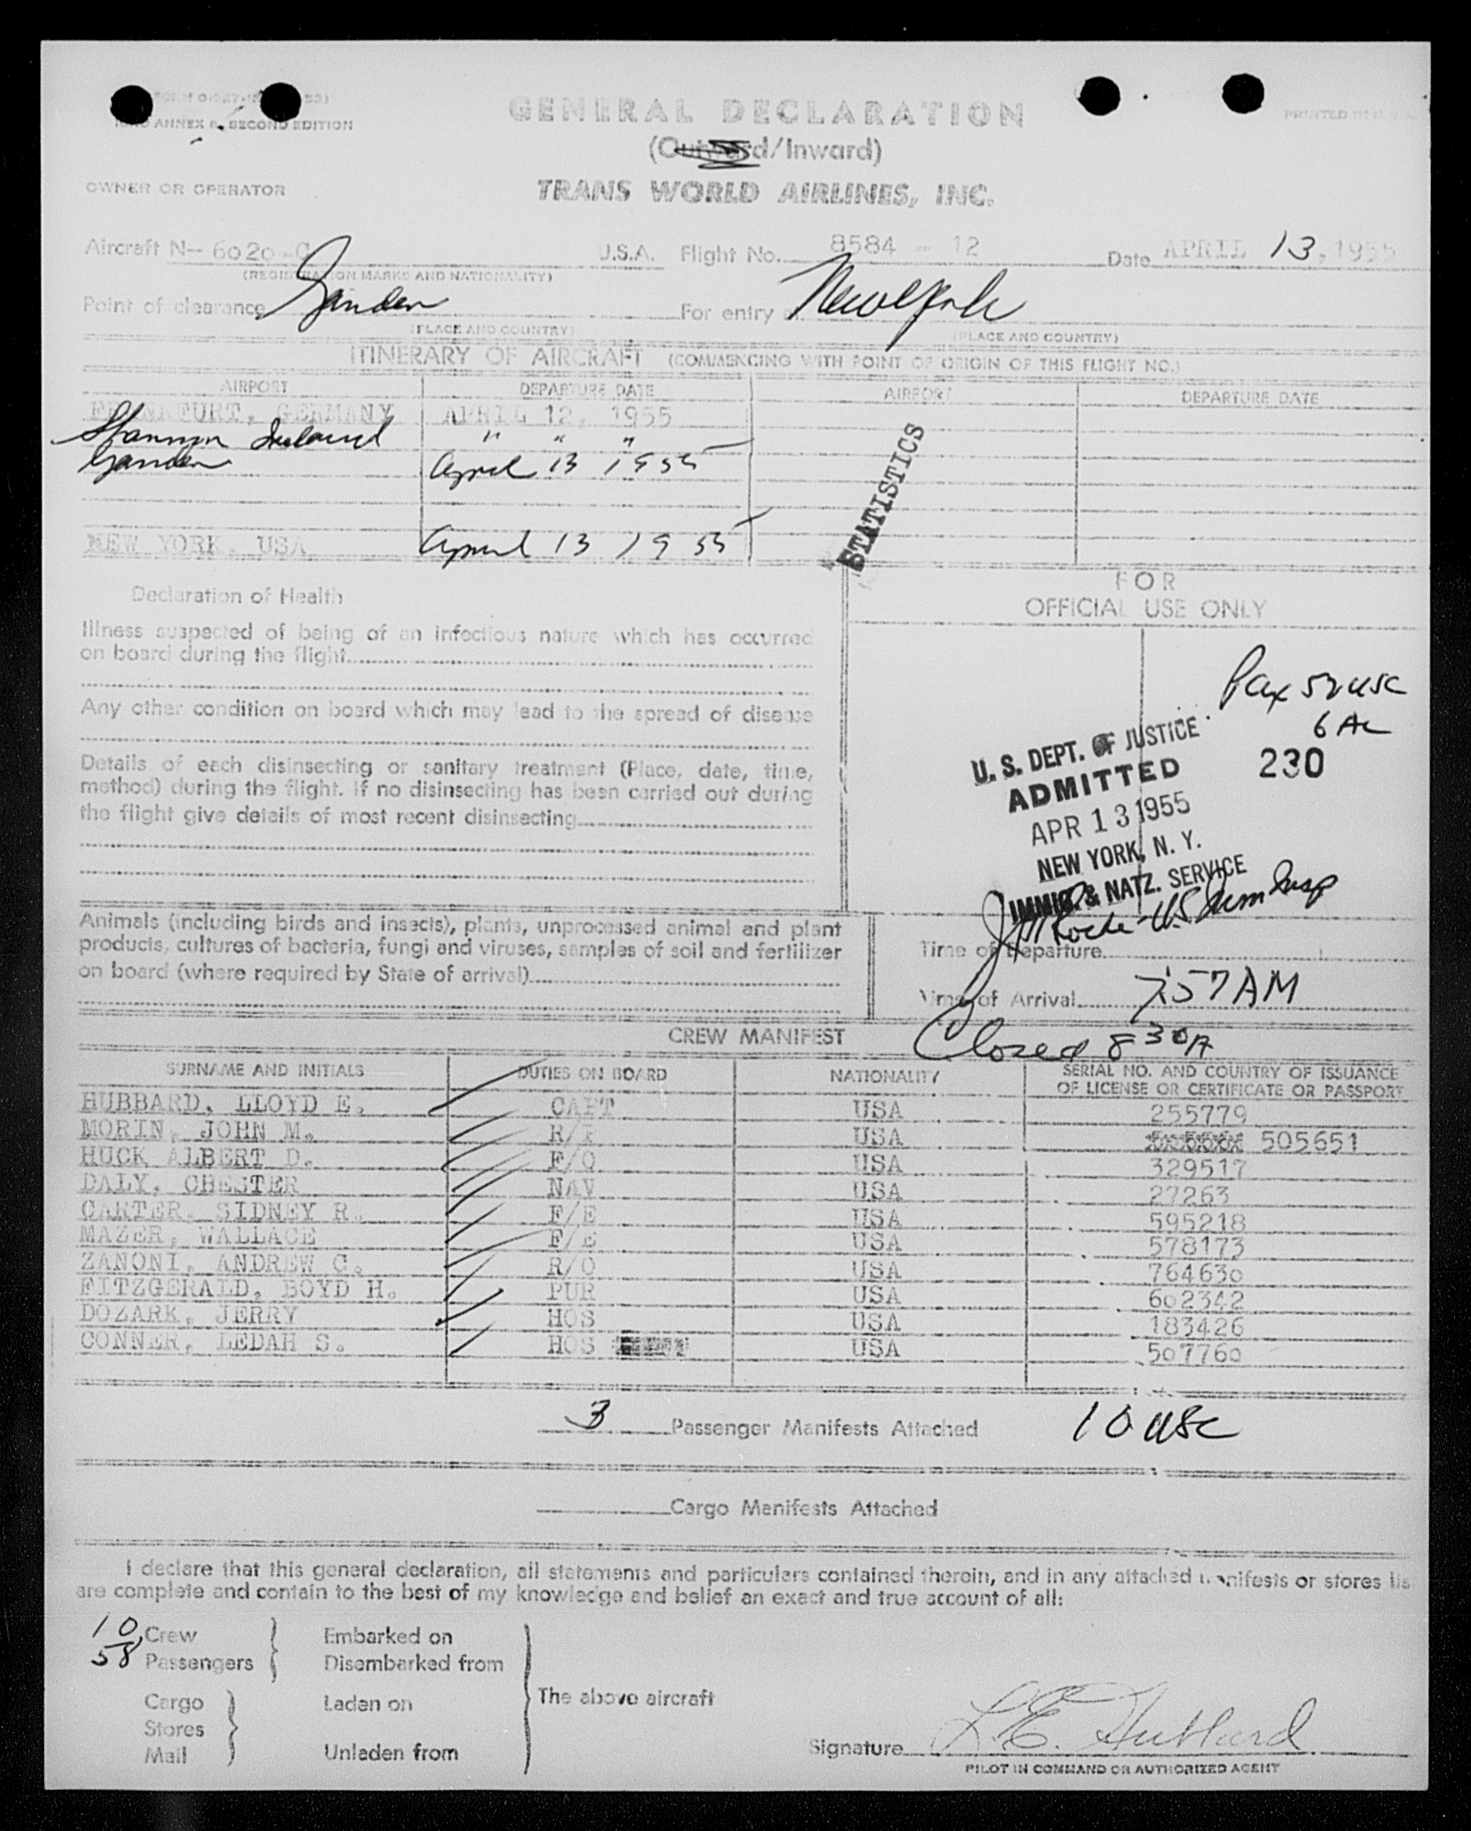 ANNEX 9, SECOND EDITION
GENERAL DECLARATION
(Outward/Inward)
OWNER OR OPERATOR
TRANS WORLD AIRLINES, INC.
Aircraft N-- 6020-C U.S.A. Flight No. 8584 - 12 Date APRIL 13, 1955
(REGISTRATION MARKS AND NATIONALITY)
Point of clearance Gander For entry New York
(PLACE AND COUNTRY) (PLACE AND COUNTRY)
ITINERARY OF AIRCRAFT (COMMENCING WITH POINT OF ORIGIN OF THIS FLIGHT NO.)
AIRPORT DEPARTURE DATE AIRPORT DEPARTURE DATE
FRANKFURT, GERMANY APRIL 12, 1955
Shannon Ireland " " "
Gander April 13 1955
NEW YORK, USA April 13 1955
STATISTICS
Declaration of Health
FOR
OFFICIAL USE ONLY
Illness suspected of being of an infectious nature which has occurred
on board during the flight
Any other condition on board which may lead to the spread of disease
Details of each disinsecting or sanitary treatment (Place, date, time,
method) during the flight. If no disinsecting has been carried out during
the flight give details of most recent disinsecting
Pax 52 USC
6 AL
230
U. S. DEPT. OF JUSTICE
ADMITTED
APR 13 1955
NEW YORK, N. Y.
IMMIG. & NATZ. SERVICE
Roche U.S. Imm Insp
Animals (including birds and insects), plants, unprocessed animal and plant
products, cultures of bacteria, fungi and viruses, samples of soil and fertilizer
on board (where required by State of arrival)
Time of Departure
Time of Arrival 7:57 AM
Closed 8 30 A
CREW MANIFEST
SURNAME AND INITIALS DUTIES ON BOARD NATIONALITY SERIAL NO. AND COUNTRY OF ISSUANCE
OF LICENSE OR CERTIFICATE OR PASSPORT
HUBBARD, LLOYD E. CAPT USA 255779
MORIN, JOHN M. USA 505651
HUCK ALBERT D. F/O USA 329517
DALY, CHESTER NAV USA 27263
CARTER, SIDNEY R. F/E USA 595218
MAZER, WALLACE F/E USA 578173
ZANONI, ANDREW C. R/O USA 764630
FITZGERALD, BOYD H. PUR USA 602342
DOZARK, JERRY HOS USA 183426
CONNER, LEDAH S. HOS USA 507760
3 Passenger Manifests Attached 10 USC
Cargo Manifests Attached
I declare that this general declaration, all statements and particulars contained therein, and in any attached manifests or stores lis
are complete and contain to the best of my knowledge and belief an exact and true account of all:
10 Crew Embarked on
58 Passengers Disembarked from
The above aircraft
Cargo Laden on
Stores
Mail Unladen from
Signature L. E. Hubbard
PILOT IN COMMAND OR AUTHORIZED AGENT